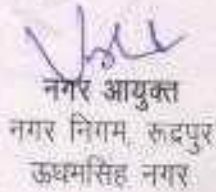 नगर आयुक्त
नगर निगम, रूद्रपुर
ऊधमसिंह नगर